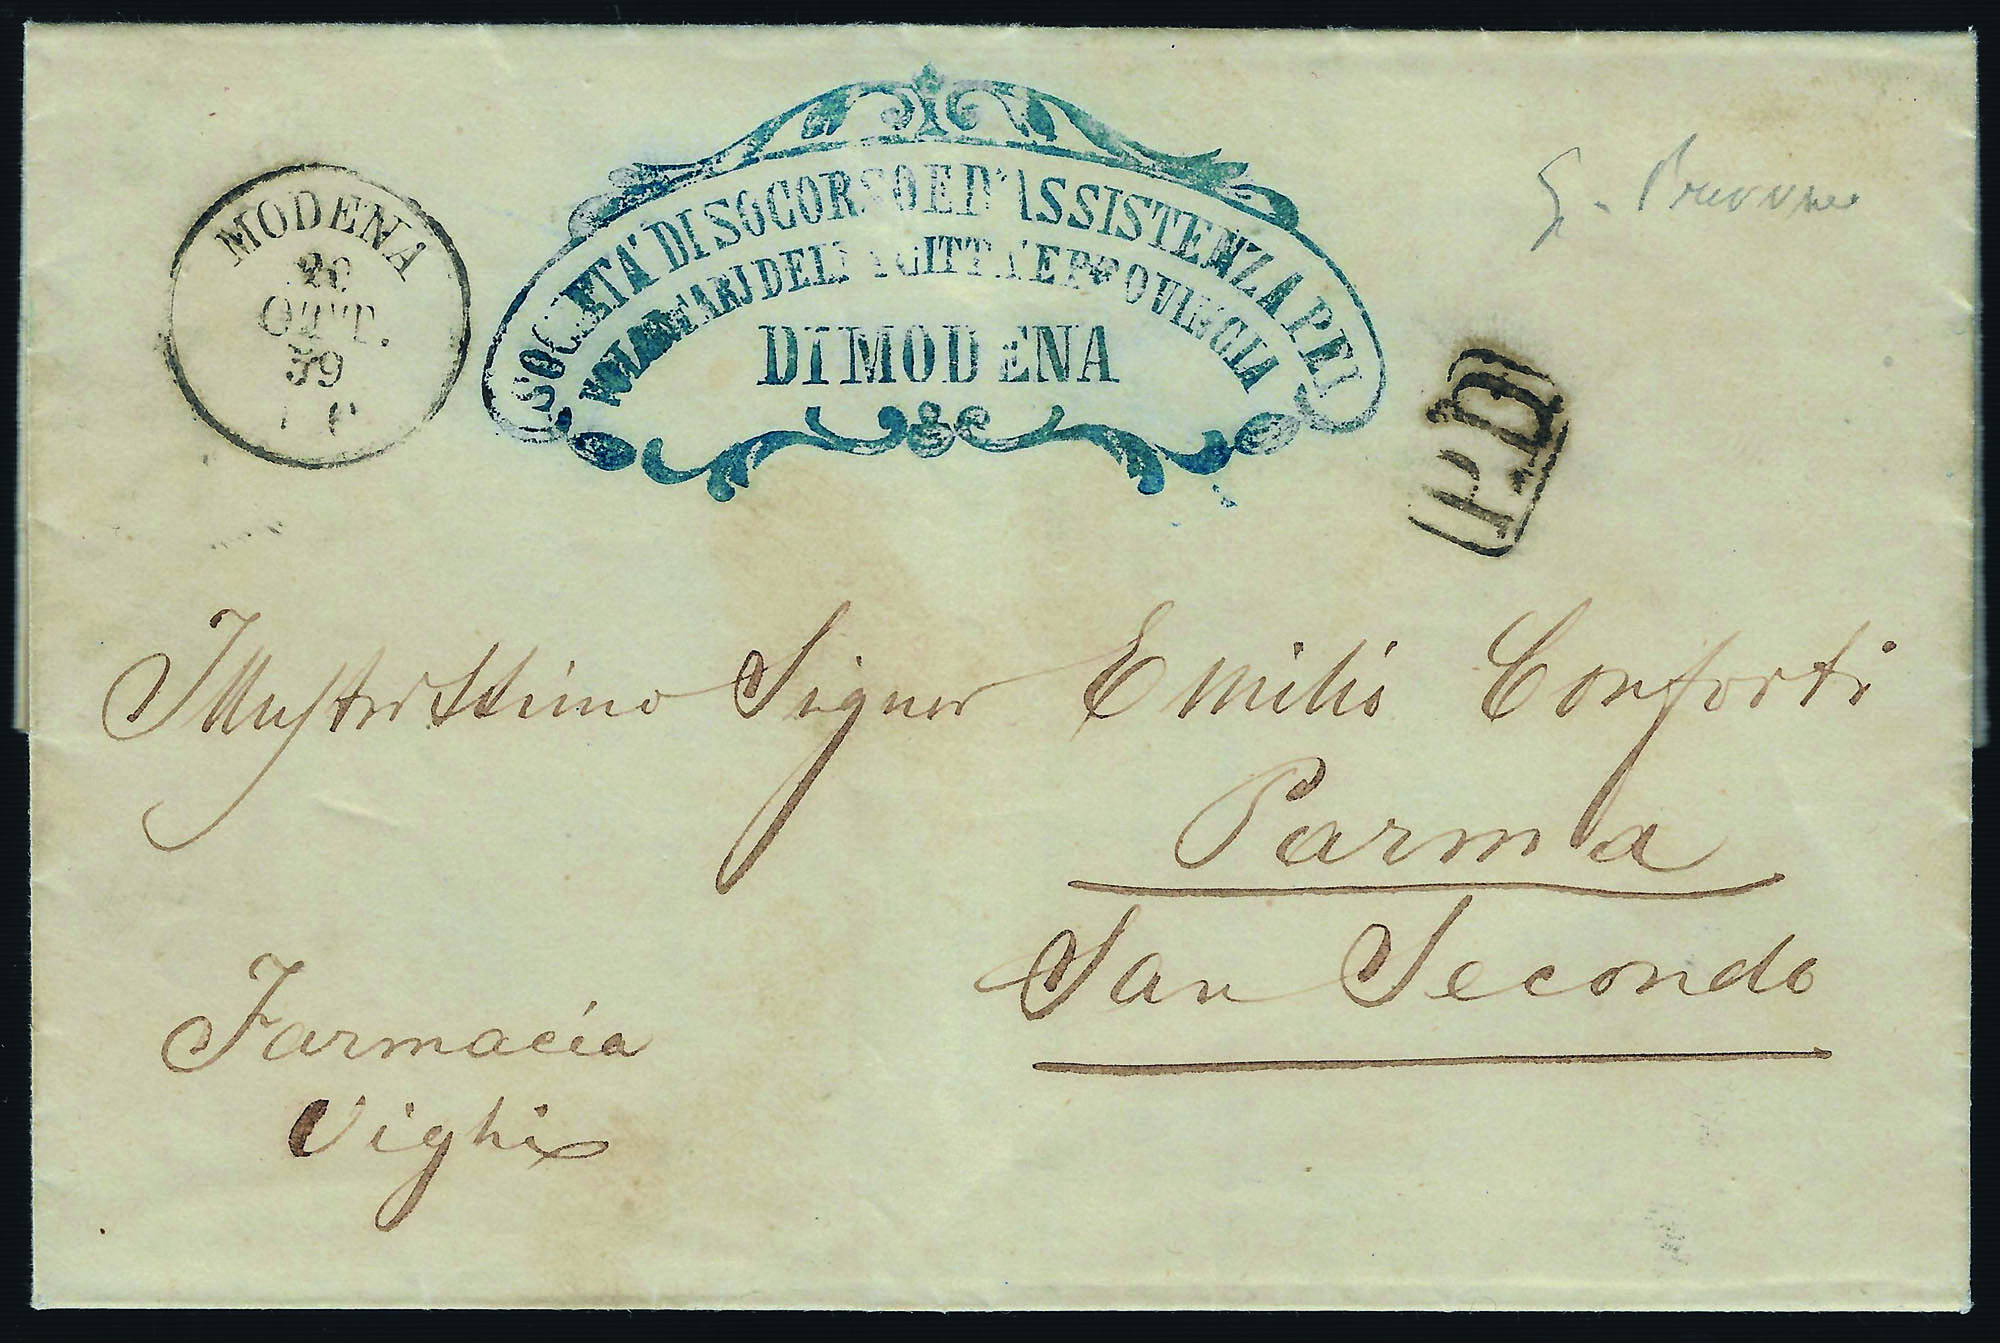 MODENA
20
OTT.
59
SOCIETA' DI SOCORSO ED'ASSISTENZA PEI
VOLONTARJ DELLA CITTA' E PROVINCIA
DI MODENA
P.D.
Illustrissimo Signor Emilio Conforti
Parma
San Secondo
Farmacia
Vighi